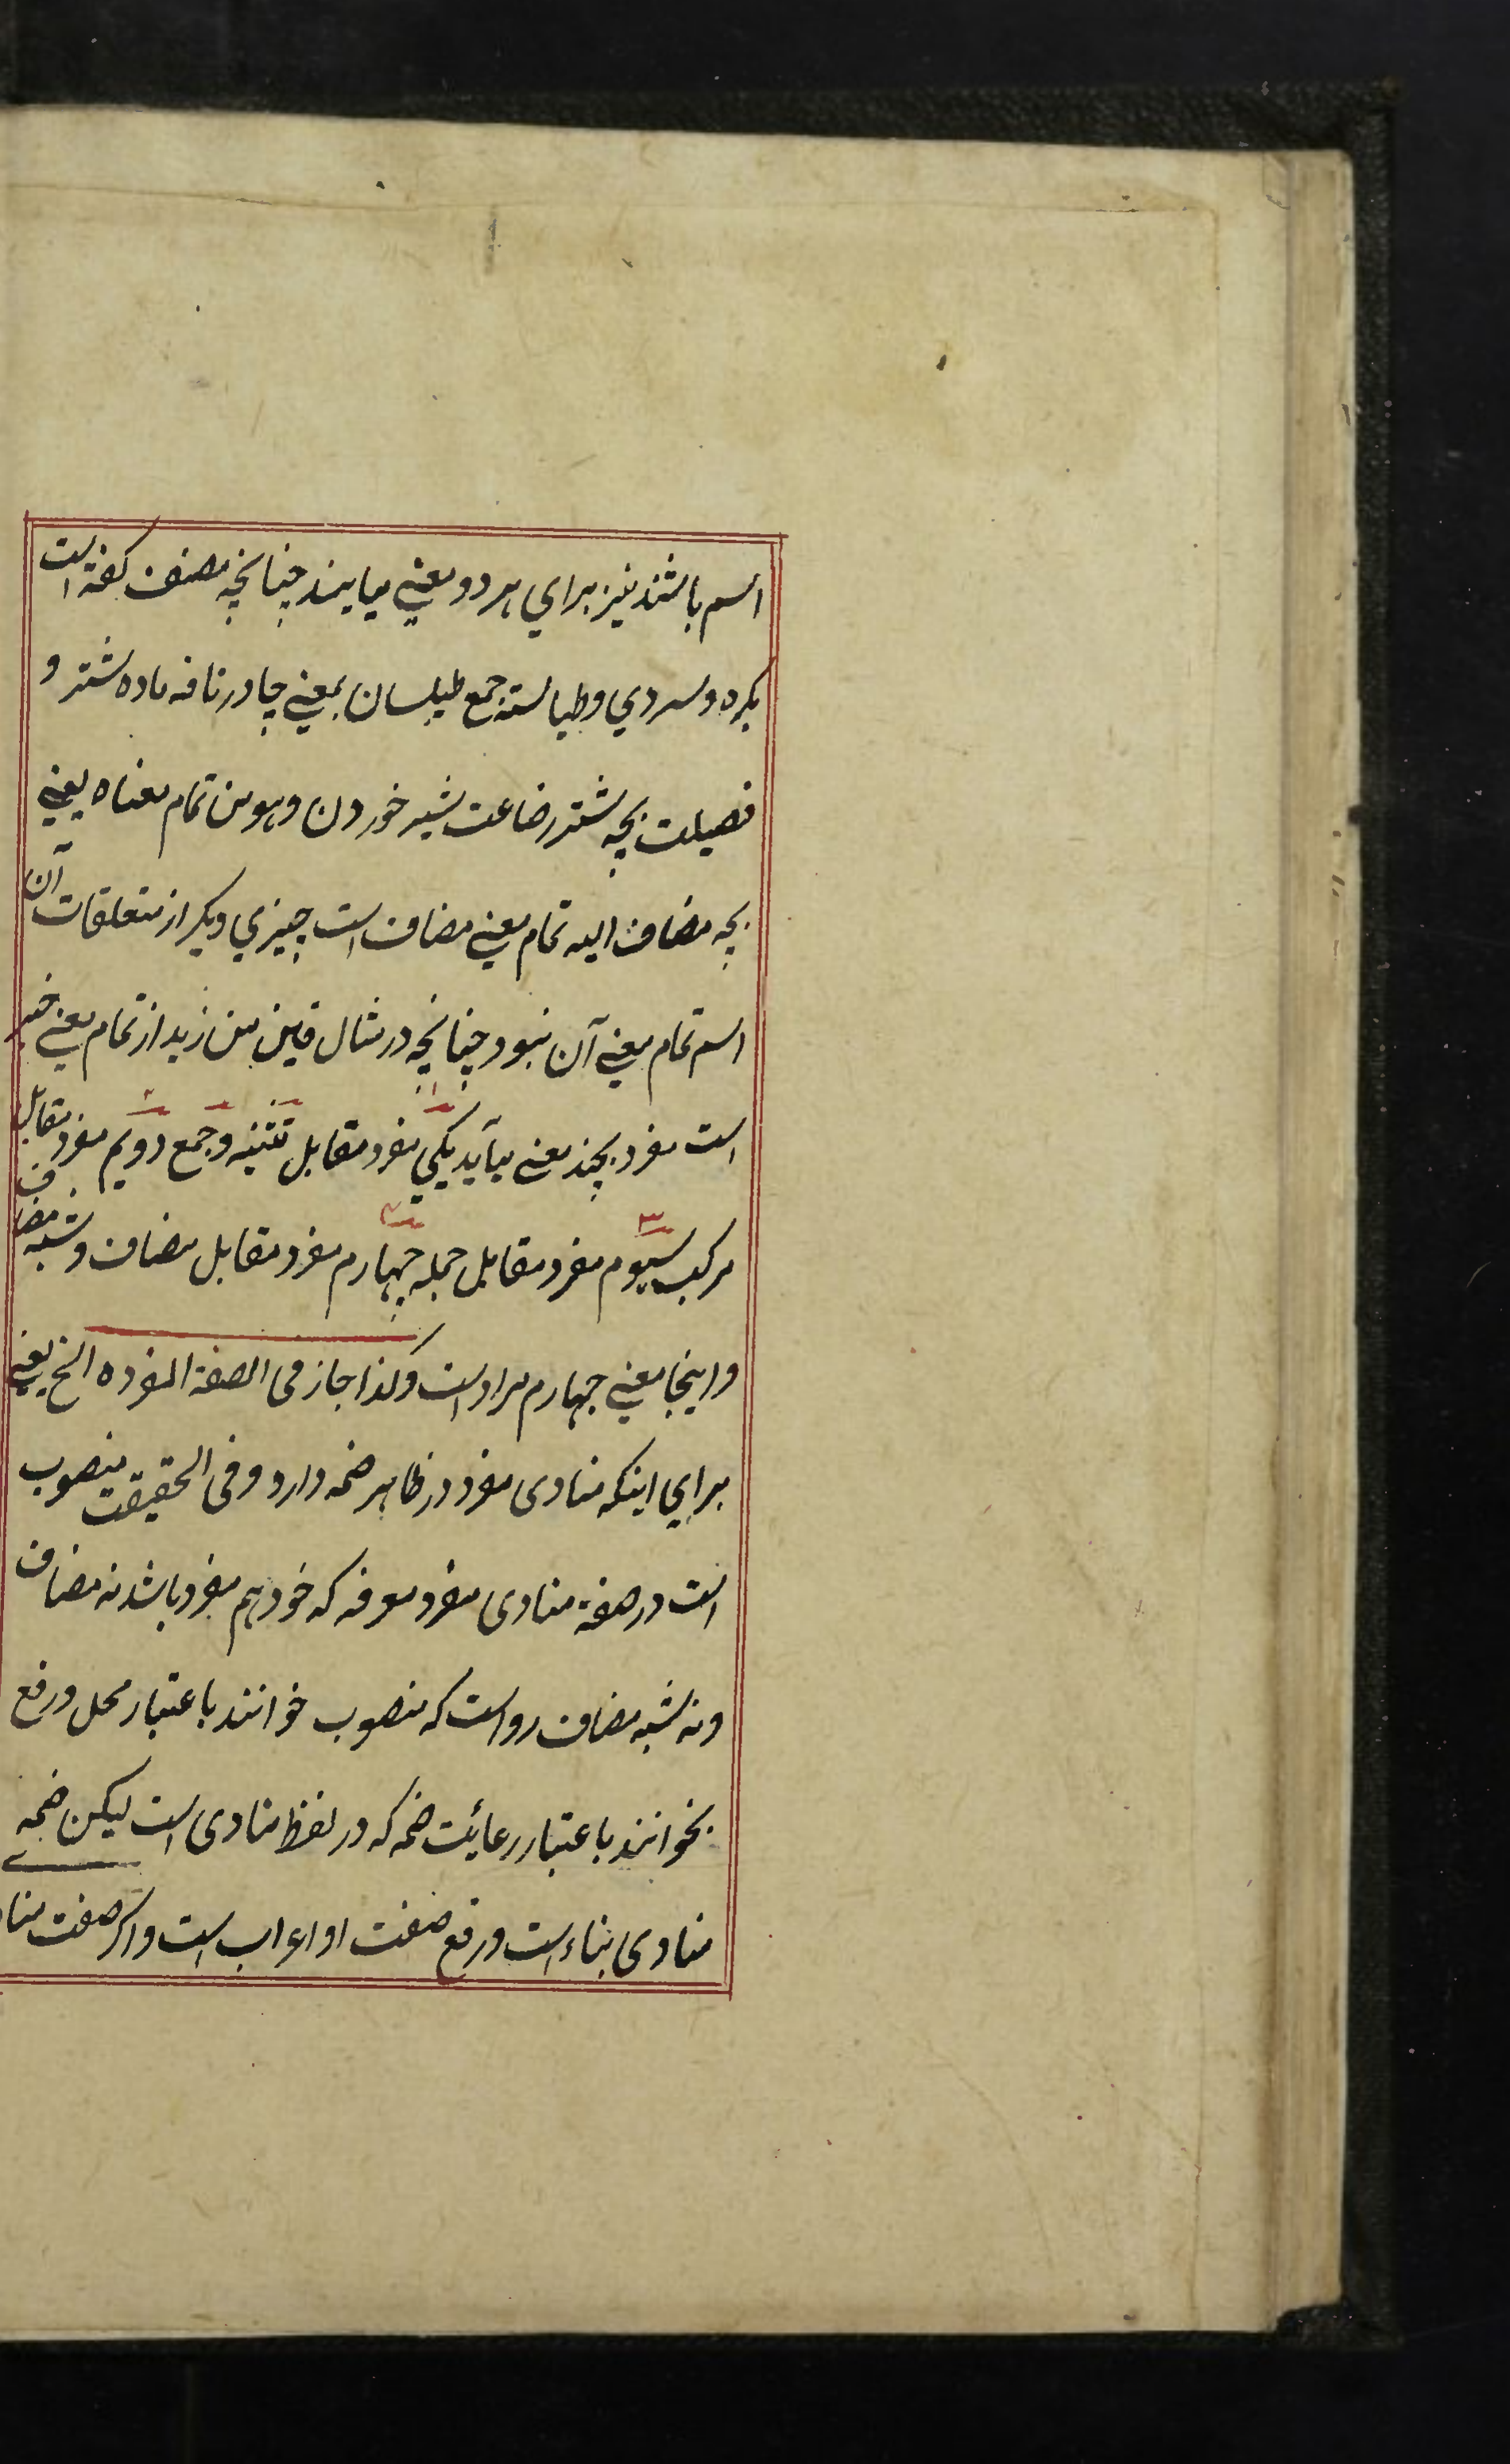 اسم باشند نیز برای هر دو معنی میایند چنانچه مصنف کفته است
بکره وسردی وطیالسته جمع طیلسان بمعنی چادر ناقه ماده شتر و
فصیلت بچه شتر رضاعت شیر خوردن وهو من تمام معناه یعنی
بچه مضاف الیه تمام معنی مضاف است چیزی دیکر از متعلقات آن
اسم تمام معنی آن نبود چنانچه در مثال من زید از تمام معنی خیر
است مفرد بچند معنی میآید یکی مفرد مقابل تثنیه وجمع دویم مفرد مقابل
مرکب سیوم مفرد مقابل جمله چهارم مفرد مقابل مضاف وشبه مضاف
واینجا معنی چهارم مراد است وکذا جاز فی الصفة المفرده الخ یعنی
برای اینکه منادی مفرد در ظاهر ضمه دارد وفی الحقیقت منصوب
است در صفة منادی مفرد معرفه که خود هم مفرد باشد نه مضاف
ونه شبه مضاف رواست که منصوب خوانند باعتبار محل ورفع
بخوانند باعتبار رعائت ضمه که در لفظ منادی است لیکن ضمه
منادی بناء است ورفع صفت او اعراب است واکر صفت منا